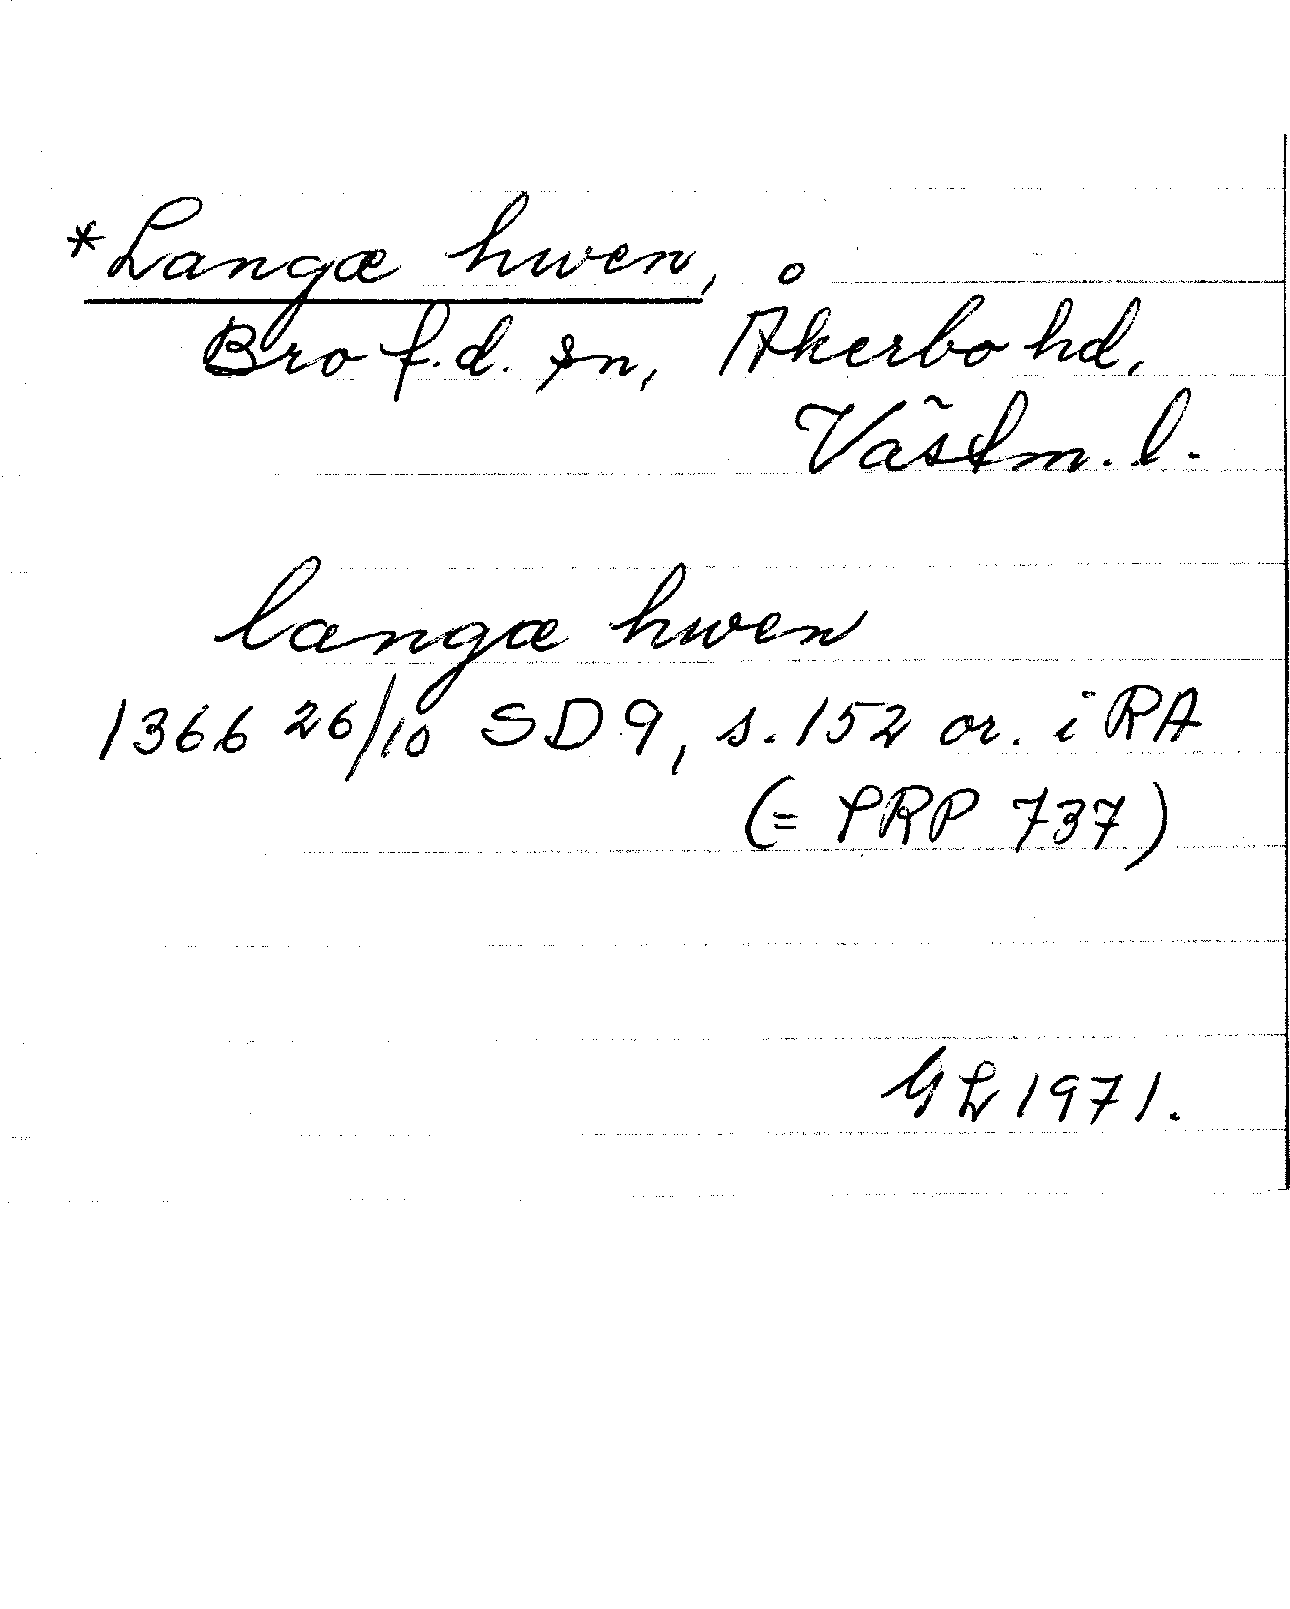 *Langæ hwen,
Bro f.d. sn, Åkerbo hd,
Västm. l.
langæ hwen
1366 26/10 SD 9, s. 152 or. i RA
(= PRP 737)
GL 1971.